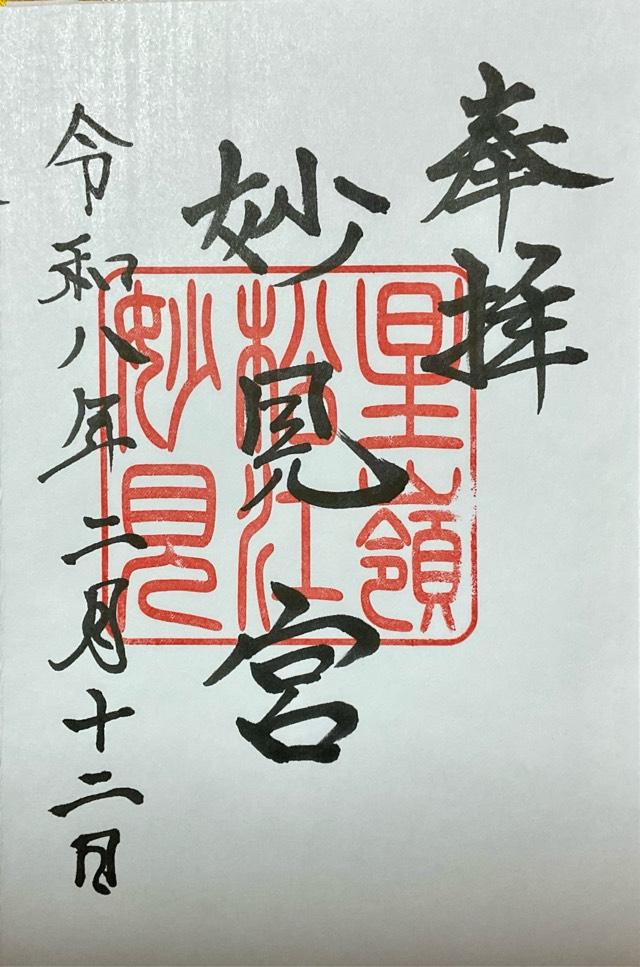 奉拝
妙見宮
令和八年二月十二日
星嶺
松江
妙見